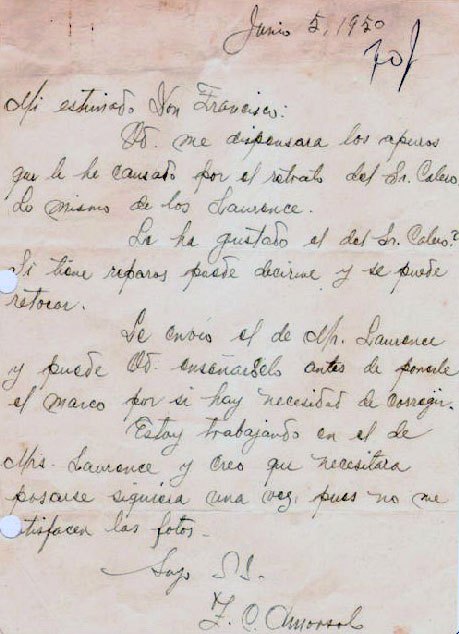 Junio 5, 1950
Mi estimado Don Francisco:
Vd. me dispensara los apuros
que le he causado por el retrato del Sr. Calero
Lo mismo de los Laurence.
Le ha gustado el del Sr. Calero?
Si tiene reparos puede decirme y se puede
retocar.
Le envío el de Mr. Laurence
y puede Vd. enseñarselo antes de ponerle
el marco por si hay necesidad de corregir.
Estoy trabajando en el de
Mrs. Laurence y creo que necesitara
posarse siquiera una vez, pues no me
tisfacen las fotos.
Suyo SS.
F. C. Amorsolo